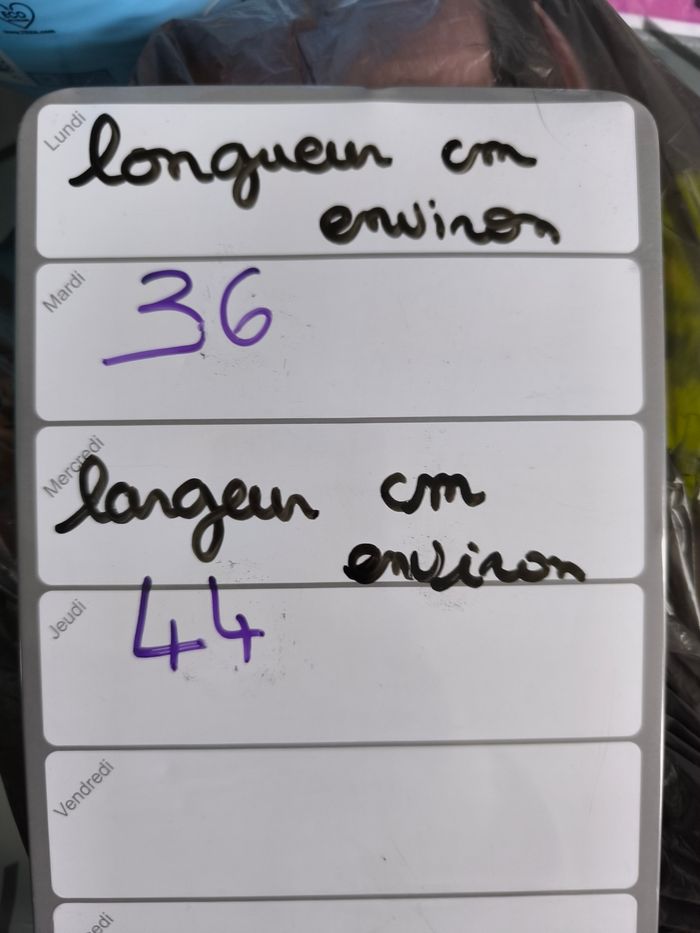 ECO
Lundi
longueur cm
environ
Mardi
36
Mercredi
largeur cm
environ
Jeudi
44
Vendredi
edi